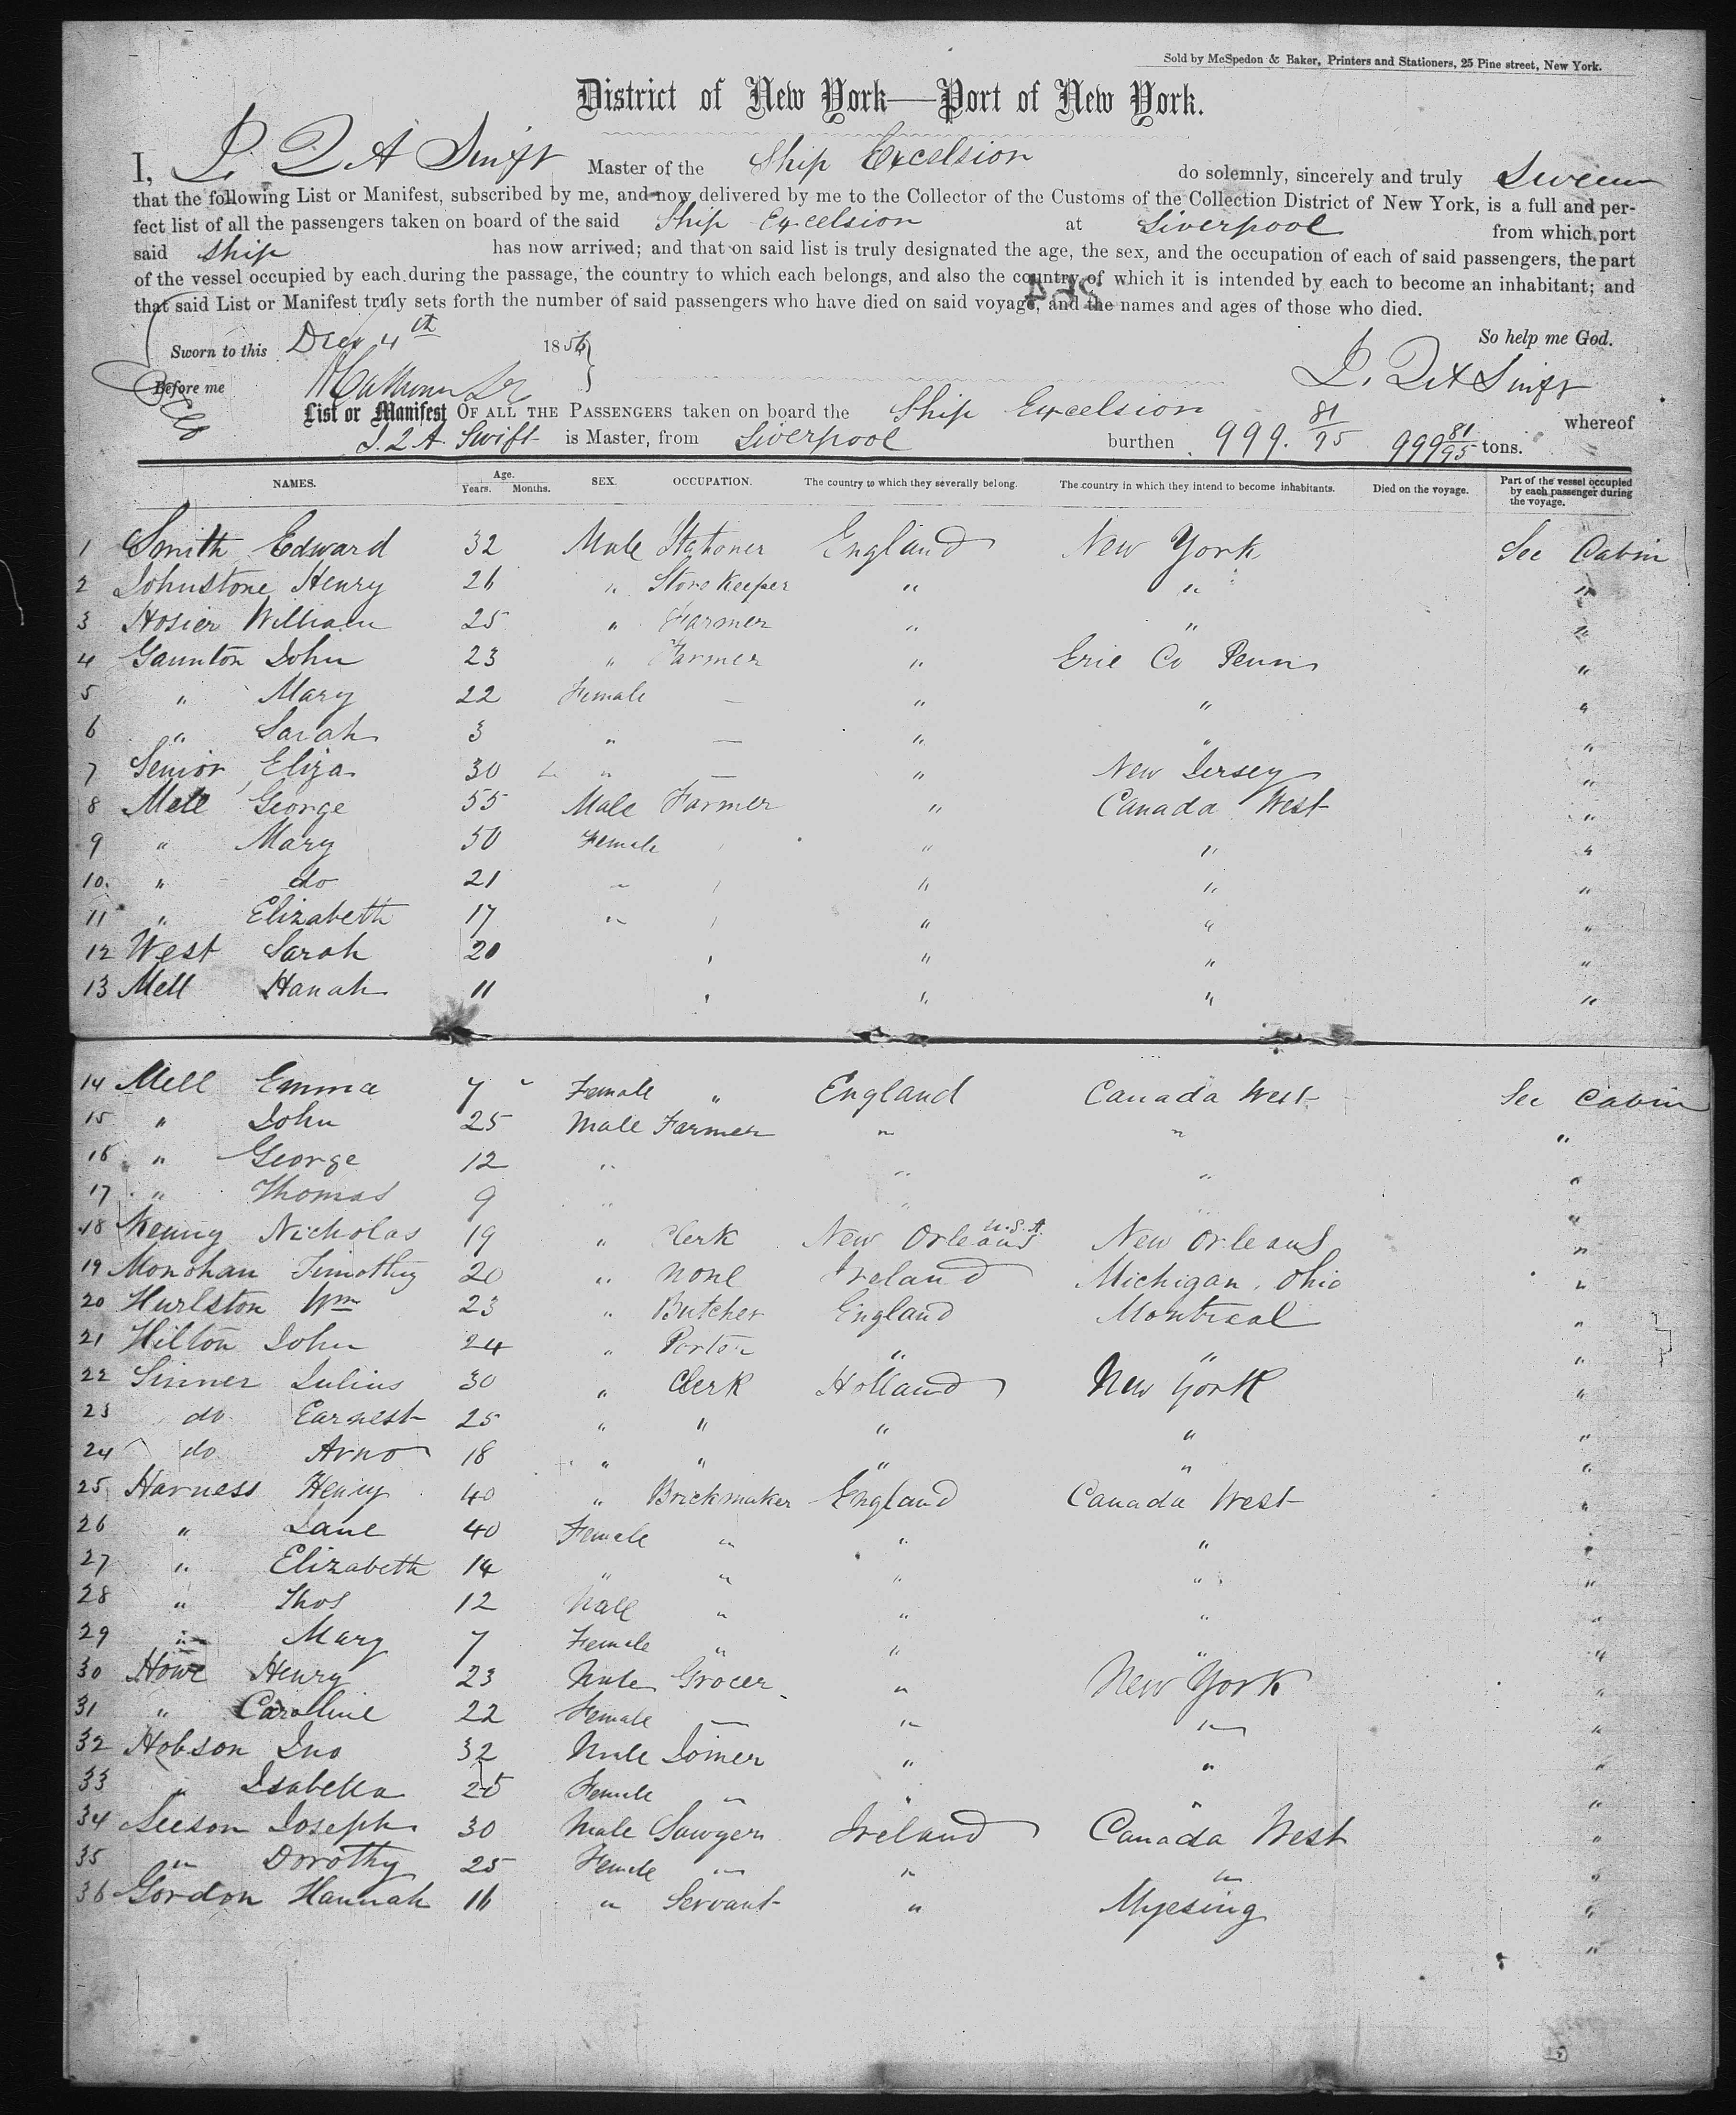 Sold by McSpedon & Baker, Printers and Stationers, 25 Pine street, New York.
District of New York—Port of New York.
I, J. Q A Swift Master of the Ship Excelsior do solemnly, sincerely and truly Swear
that the following List or Manifest, subscribed by me, and now delivered by me to the Collector of the Customs of the Collection District of New York, is a full and per-
fect list of all the passengers taken on board of the said Ship Excelsior at Liverpool from which port
said Ship has now arrived; and that on said list is truly designated the age, the sex, and the occupation of each of said passengers, the part
of the vessel occupied by each during the passage, the country to which each belongs, and also the country of which it is intended by each to become an inhabitant; and
that said List or Manifest truly sets forth the number of said passengers who have died on said voyage, and the names and ages of those who died.
So help me God.
Sworn to this Decr 4th 1856
J. Q A Swift
Before me
List or Manifest OF ALL THE PASSENGERS taken on board the Ship Excelsior whereof
J. Q A. Swift is Master, from Liverpool burthen 999. 81/95 999 81/95 tons.
NAMES. Age. Years. Months. SEX. OCCUPATION. The country to which they severally belong. The country in which they intend to become inhabitants. Died on the voyage. Part of the vessel occupied by each passenger during the voyage.
1 Smith Edward 32 Male Stationer England New York Sec Cabin
2 Johnstone Henry 26 " Store Keeper " " "
3 Hosier William 25 " Farmer " " "
4 Gaunton John 23 " Farmer " Erie Co Penn "
5 " Mary 22 Female — " " "
6 " Sarah 3 " — " " "
7 Senior Eliza 30 " — " New Jersey "
8 Mell George 55 Male Farmer " Canada West "
9 " Mary 50 Female " " "
10 " do 21 " " " "
11 " Elizabeth 17 " " " "
12 West Sarah 20 " " "
13 Mell Hanah 11 " " "
14 Mell Emma 7 Female " England Canada West Sec Cabin
15 " John 25 Male Farmer " " "
16 " George 12 " " " "
17 " Thomas 9 " " " "
18 Kenny Nicholas 19 " Clerk New Orleans U.S.A. New Orleans "
19 Monohan Timothy 20 " None Ireland Michigan, Ohio "
20 Hurlston Wm 23 " Butcher England Montreal "
21 Hilton John 24 " Porter " " "
22 Sinner Julius 30 " Clerk Holland New York "
23 do Earnest 25 " " " " "
24 do Arno 18 " " " " "
25 Harness Henry 40 " Brickmaker England Canada West "
26 " Jane 40 Female " " " "
27 " Elizabeth 14 " " " " "
28 " Thos 12 Male " " " "
29 " Mary 7 Female " " " "
30 Howe Henry 23 Male Grocer " New York "
31 " Carolline 22 Female — " " "
32 Hobson Jno 32 Male Joiner " " "
33 " Isabella 25 Female " " " "
34 Leeson Joseph 30 Male Sawyer Ireland Canada West "
35 " Dorothy 25 Female " " " "
36 Gordon Hannah 16 " Servant " "
"